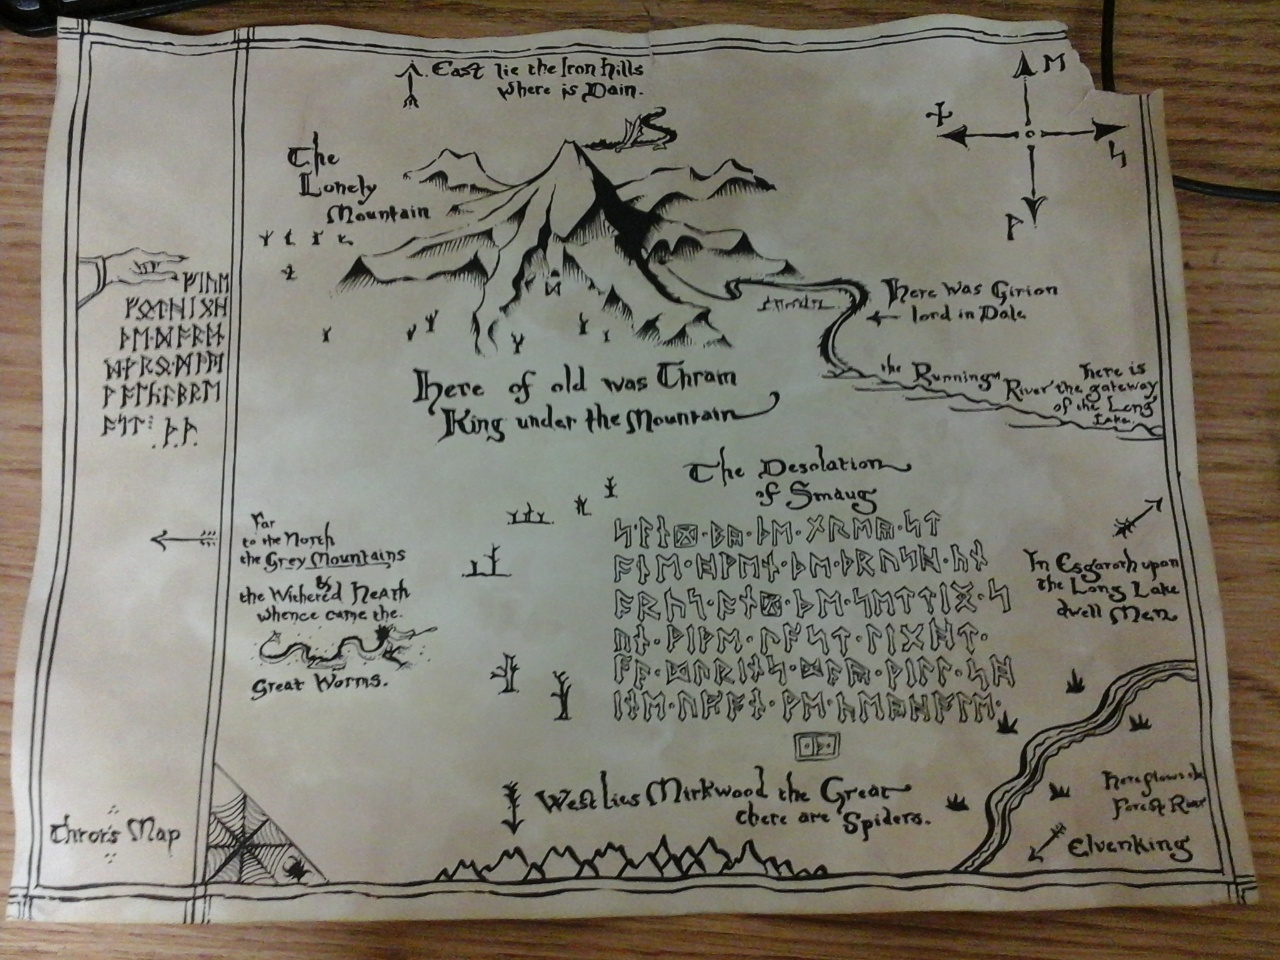 East lie the Iron Hills
where is Dain.
ᛖ
ᚾ
ᛋ
ᚹ
The
Lonely
Mountain
ᚠᛁᚢᛖ
ᚠᛟᛏᚻᛁᚷᚻ
ᚦᛖᛞᚩᚱᚪᚾ
ᚦ.ᚦ.
Here was Girion
lord in Dale
the Running
River
Here is
the gateway
of the Long
Lake
Here of old was Thrain
King under the Mountain
The Desolation
of Smaug
ᚦᛖ·ᚷᚱᛖᚣ·ᛋᛏ
ᚩᚾᛖ·ᚻᚹᛖᚾ·ᚦᛖ·ᚦᚱᚢᛋᚻ·ᚳᚾ
ᚦᛖ·ᛋᛖᛏᛏᛁᛝ·ᛋ
ᚢᚾ·ᛚᚪᛋᛏ·ᛚᛁᚷᚻᛏ·
ᛞᚢᚱᛁᚾᛋ·ᛞᚪᚣ·ᚹᛁᛚᛚ·ᛋᚻ
ᛁᚾᛖ·
Far
to the North
the Grey Mountains
&
the Withered Heath
whence came the
Great Worms.
In Esgaroth upon
the Long Lake
dwell Men
West lies Mirkwood the Great
there are Spiders.
Here flows the
Forest River
Elvenking
Thror's Map